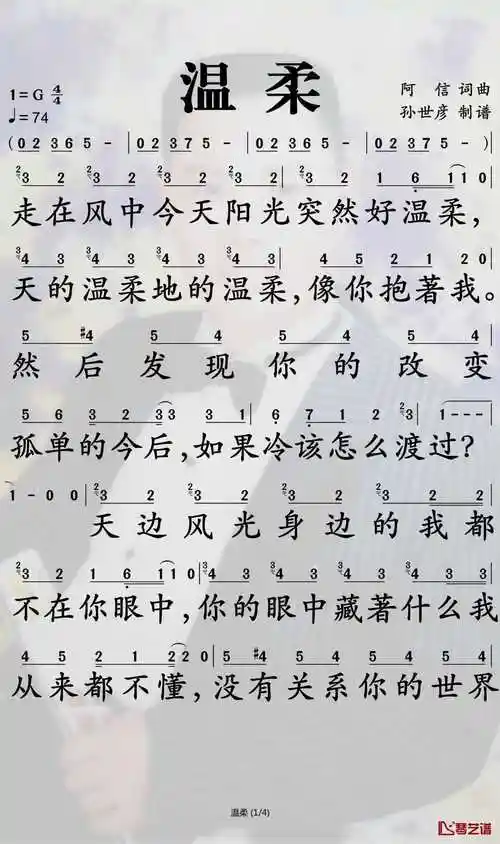 温柔
1=G 4/4
♩=74
阿 信 词曲
孙世彦 制谱
(0 2 3 6 5 - | 0 2 3 7 5 - | 0 2 3 6 5 - | 0 2 3 7 5 - )
2/3 2 2/3 2 2/3 2 2/3 2 | 2/3 2 1 6 1 1 0
走在风中今天阳光突然好温柔,
3/4 3 3/4 3 3/4 3 3/4 3 | 3/4 3 4 5 2 1 2 0
天的温柔地的温柔,像你抱著我。
5 #4 5 4 5 4 5 4
然后发现你的改变
5 6 3 2 3 3 3 1 | 6 7 1 2 2/3 | 1 - - -
孤单的今后,如果冷该怎么渡过?
1 - 0 0 | 2/3 2 2/3 2 2/3 2 2/3 2
天边风光身边的我都
2/3 2 1 6 1 1 0 | 3/4 3 3/4 3 3/4 3 3/4 3
不在你眼中,你的眼中藏著什么我
4 5 2 1 2 2 0 | 5 #4 5 4 5 4 5 4
从来都不懂,没有关系你的世界
温柔 (1/4)
琴艺谱